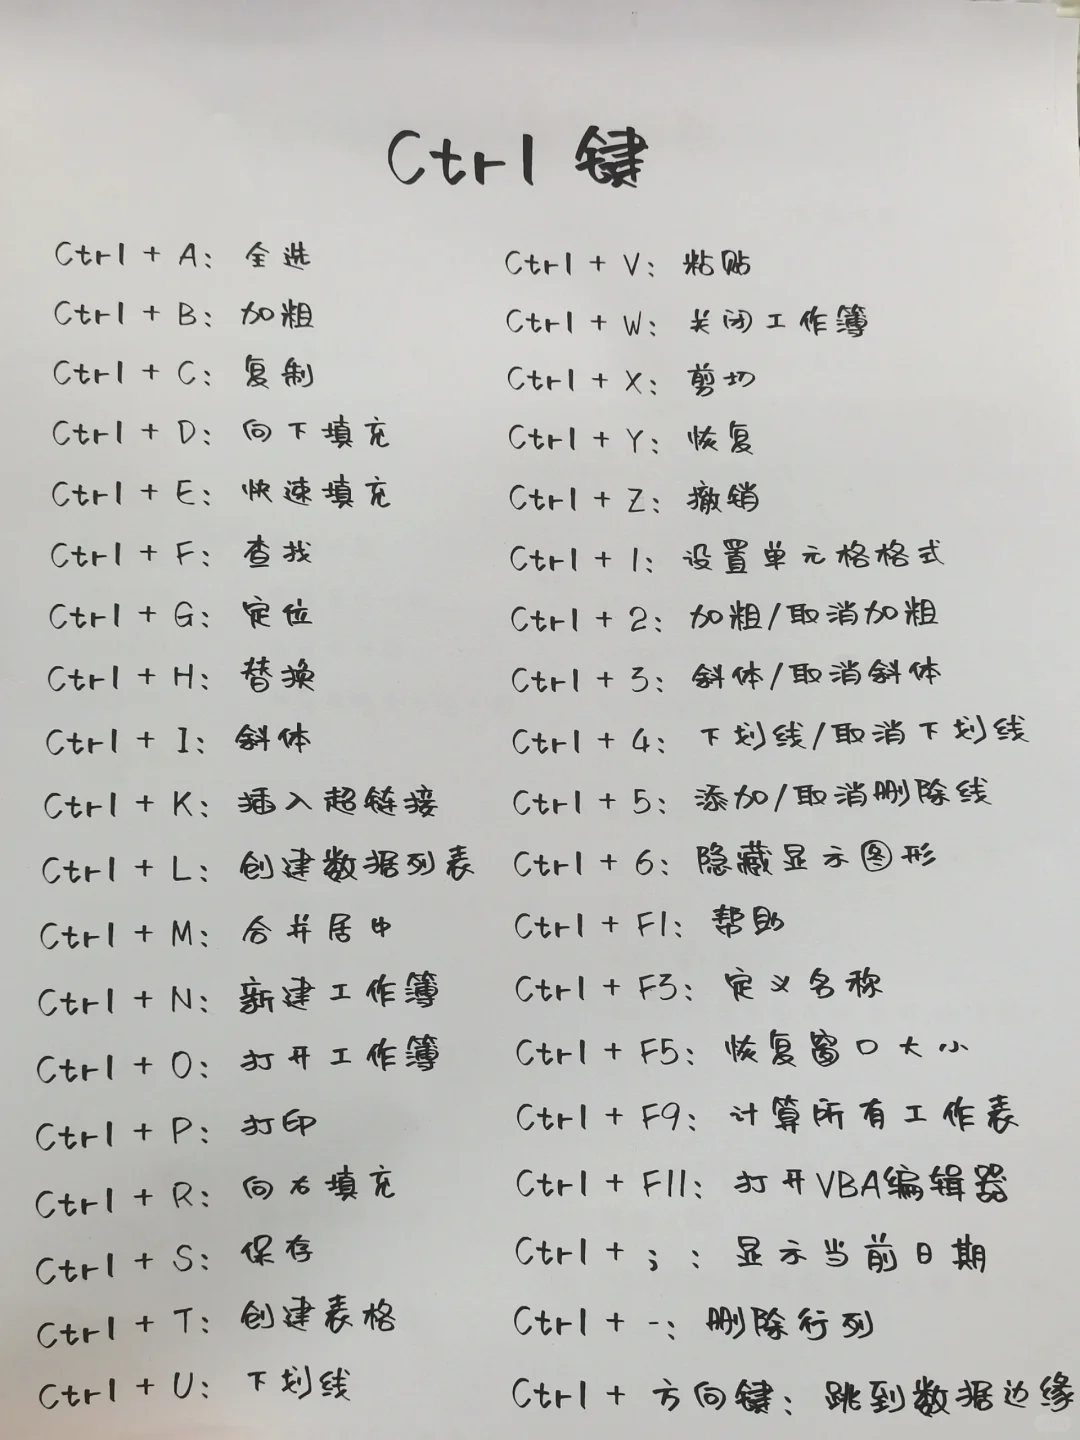 Ctrl 键
Ctrl + A: 全选
Ctrl + B: 加粗
Ctrl + C: 复制
Ctrl + D: 向下填充
Ctrl + E: 快速填充
Ctrl + F: 查找
Ctrl + G: 定位
Ctrl + H: 替换
Ctrl + I: 斜体
Ctrl + K: 插入超链接
Ctrl + L: 创建数据列表
Ctrl + M: 合并居中
Ctrl + N: 新建工作簿
Ctrl + O: 打开工作簿
Ctrl + P: 打印
Ctrl + R: 向右填充
Ctrl + S: 保存
Ctrl + T: 创建表格
Ctrl + U: 下划线
Ctrl + V: 粘贴
Ctrl + W: 关闭工作簿
Ctrl + X: 剪切
Ctrl + Y: 恢复
Ctrl + Z: 撤销
Ctrl + 1: 设置单元格格式
Ctrl + 2: 加粗/取消加粗
Ctrl + 3: 斜体/取消斜体
Ctrl + 4: 下划线/取消下划线
Ctrl + 5: 添加/取消删除线
Ctrl + 6: 隐藏显示图形
Ctrl + F1: 帮助
Ctrl + F3: 定义名称
Ctrl + F5: 恢复窗口大小
Ctrl + F9: 计算所有工作表
Ctrl + F11: 打开VBA编辑器
Ctrl + ; : 显示当前日期
Ctrl + -: 删除行列
Ctrl + 方向键: 跳到数据边缘